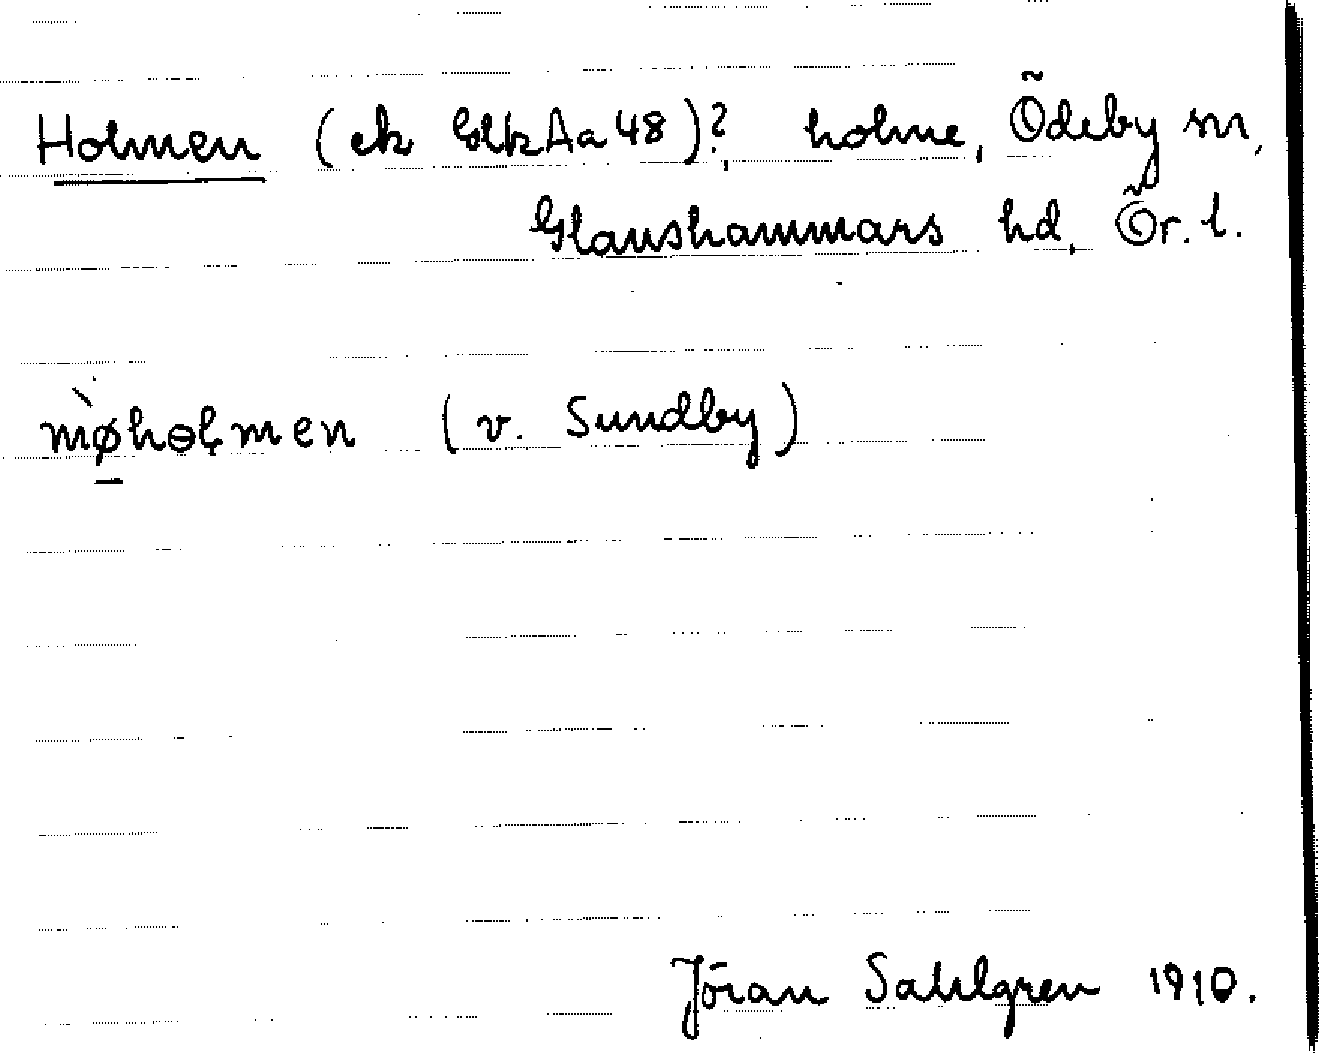 Holmen (ek GlkAa 48)?, holme, Ödeby sn,
Glanshammars hd, Ör. l.
mø̀hɵlmen (v. Sundby)
Jöran Sahlgren 1910.